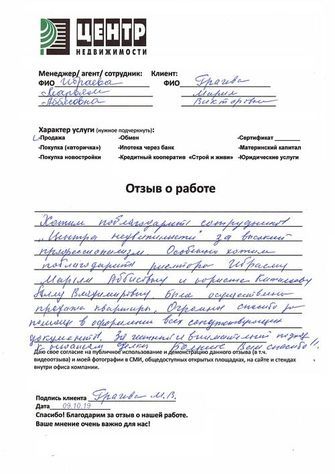 ЦЕНТР
НЕДВИЖИМОСТИ
Менеджер/ агент/ сотрудник: Клиент:
ФИО Ибраева ФИО
Марьям Мария
Аббасовна Викторовна
Характер услуги (нужное подчеркнуть):
-Продажа -Обмен -Сертификат
-Покупка (вторичка) -Ипотека через банк -Материнский капитал
-Покупка новостройки -Кредитный кооператив «Строй и живи» -Юридические услуги
Отзыв о работе
Хотим поблагодарить сотрудников
"Центра недвижимости" за высокий
профессионализм. Особенно хотим
поблагодарить риелтора Ибраеву
Марьям Аббасовну и юриста
Аллу Владимировну. Была осуществлена
продажа квартиры. Огромное спасибо за
помощь в оформлении всех сопутствующих
документов. За и внимательный подход
к Всем спасибо!!
Даю свое согласие на публичное использование и демонстрацию данного отзыва (в т.ч.
видеоотзыва) и моей фотографии в СМИ, общедоступных открытых площадках, на сайте и стендах
внутри офиса компании.
Подпись клиента М.В.
Дата 09.10.19
Спасибо! Благодарим за отзыв о нашей работе.
Ваше мнение очень важно для нас!